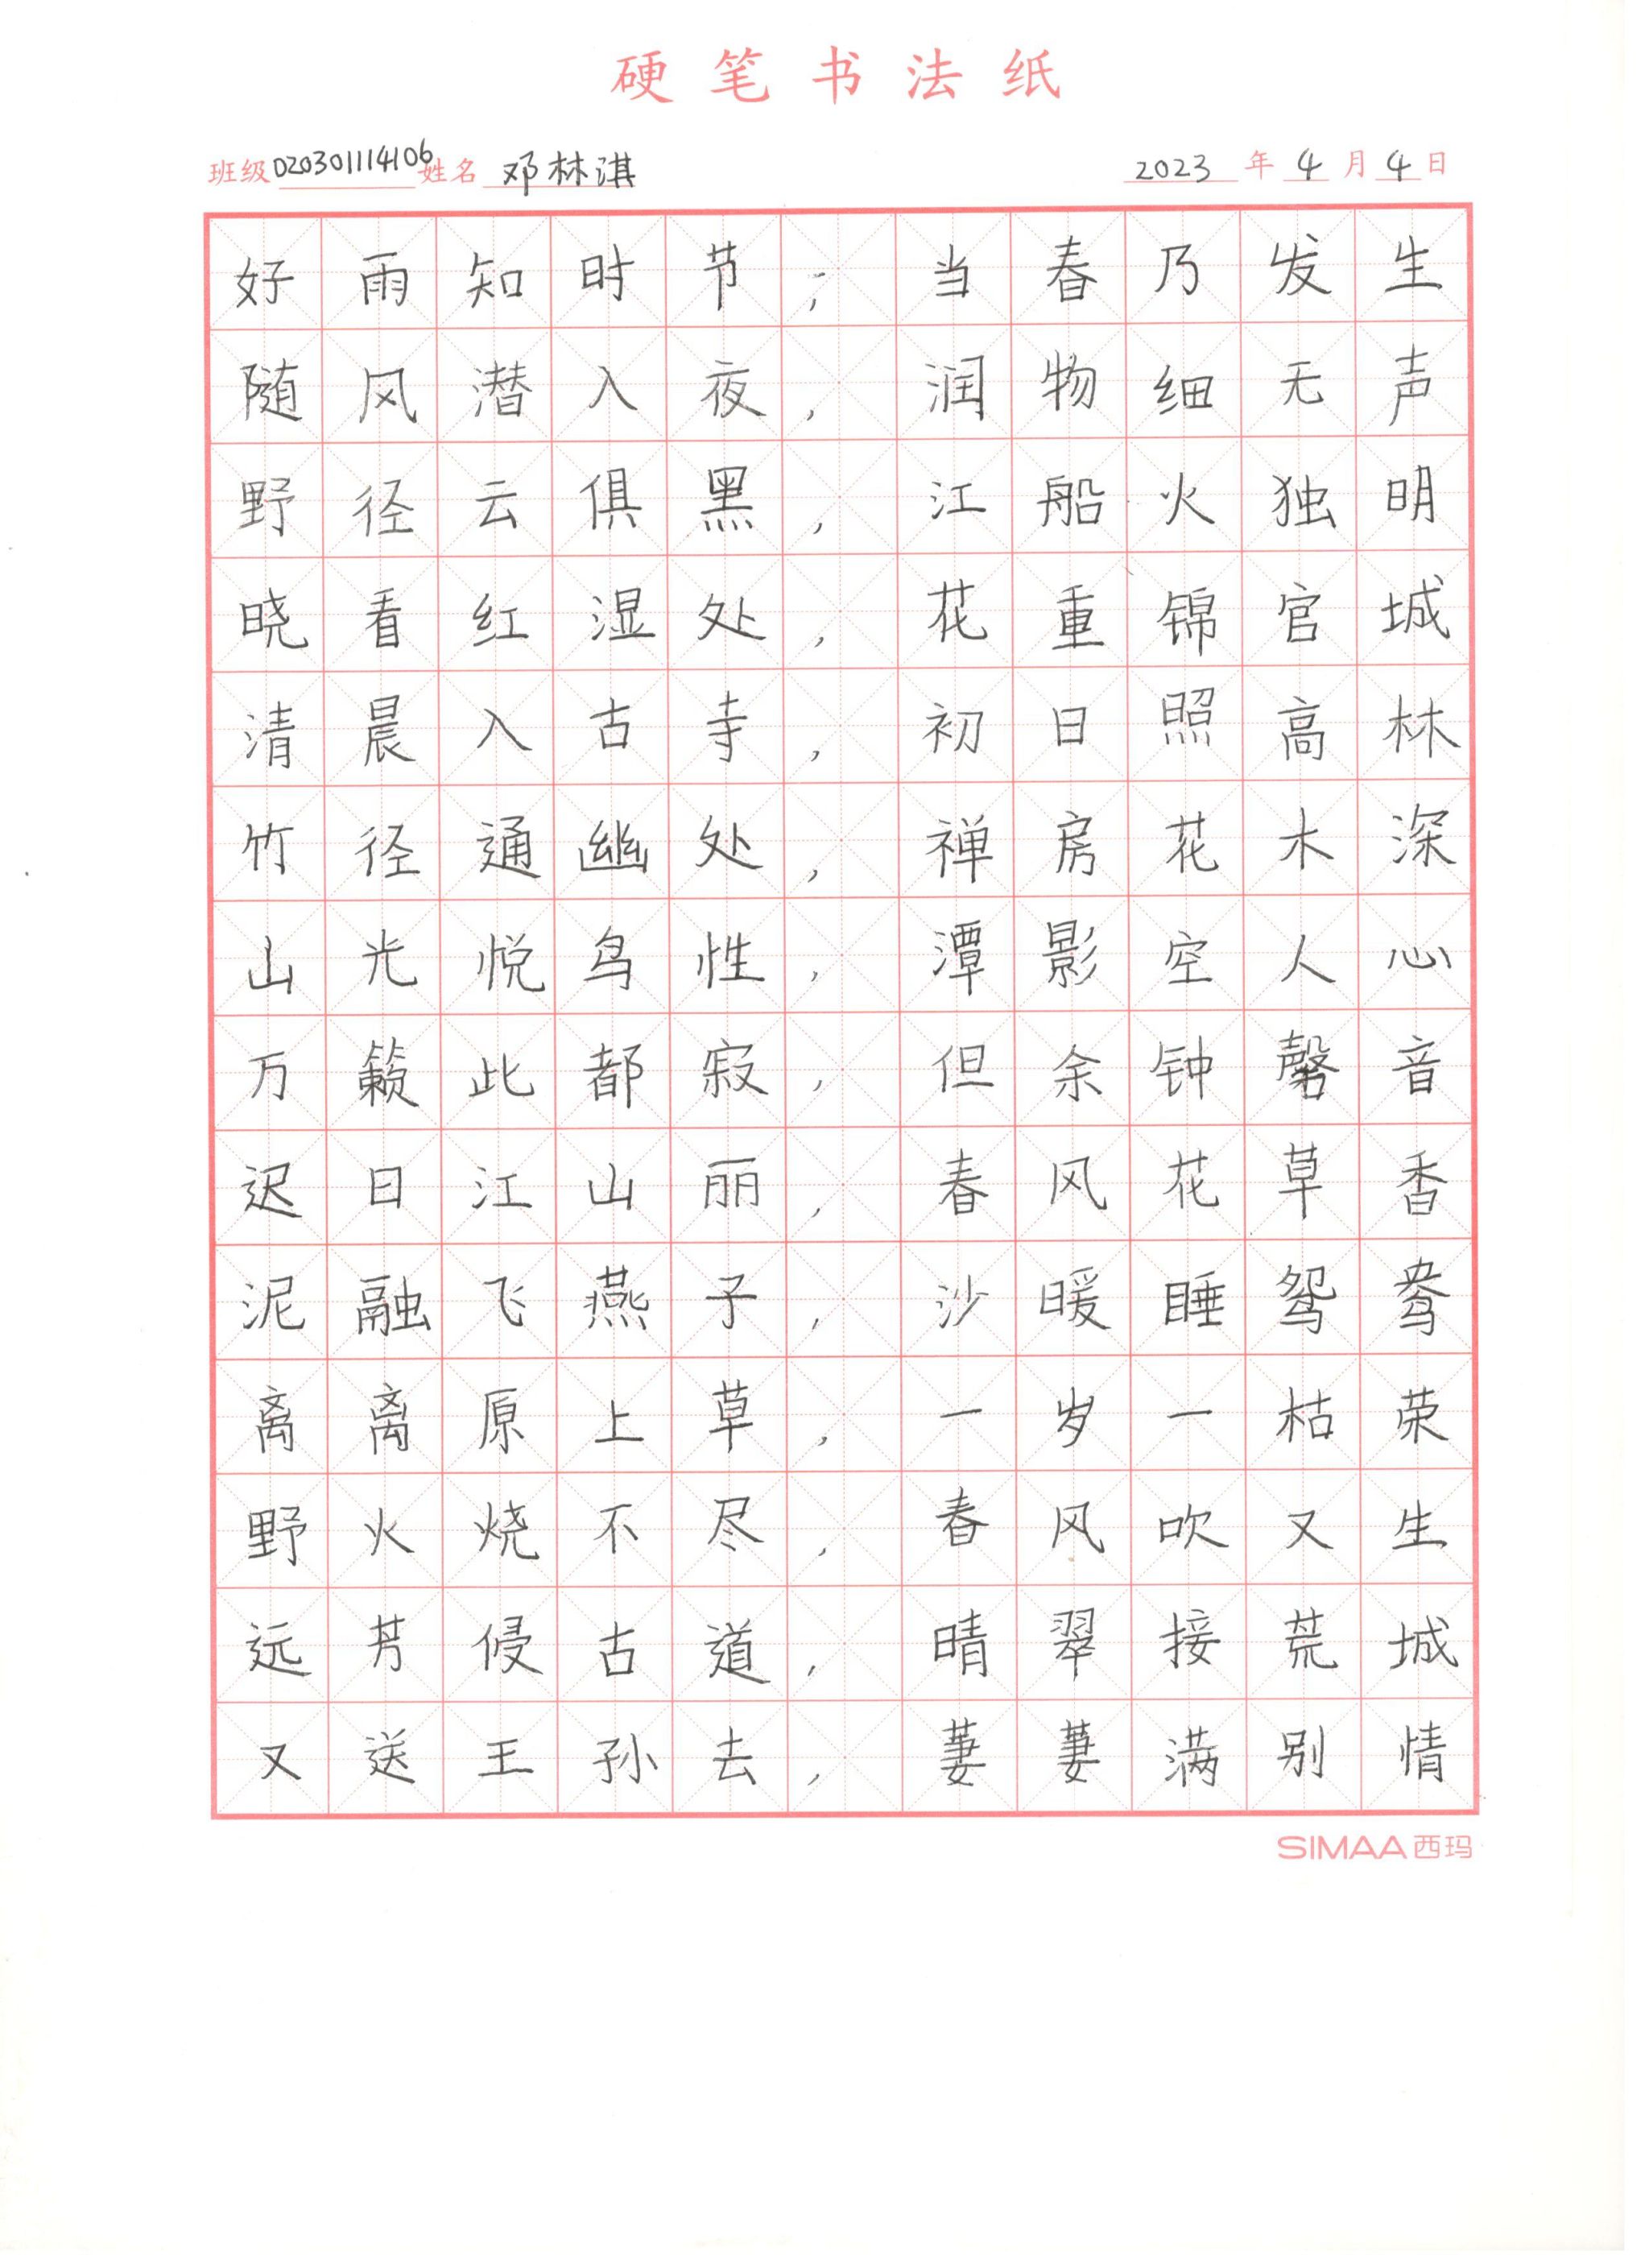 硬笔书法纸
班级 020301114106 姓名 邓林淇 2023 年 4 月 4 日
好雨知时节；当春乃发生
随风潜入夜，润物细无声
野径云俱黑，江船火独明
晓看红湿处，花重锦官城
清晨入古寺，初日照高林
竹径通幽处，禅房花木深
山光悦鸟性，潭影空人心
万籁此都寂，但余钟磬音
迟日江山丽，春风花草香
泥融飞燕子，沙暖睡鸳鸯
离离原上草，一岁一枯荣
野火烧不尽，春风吹又生
远芳侵古道，晴翠接荒城
又送王孙去，萋萋满别情
SIMAA西玛